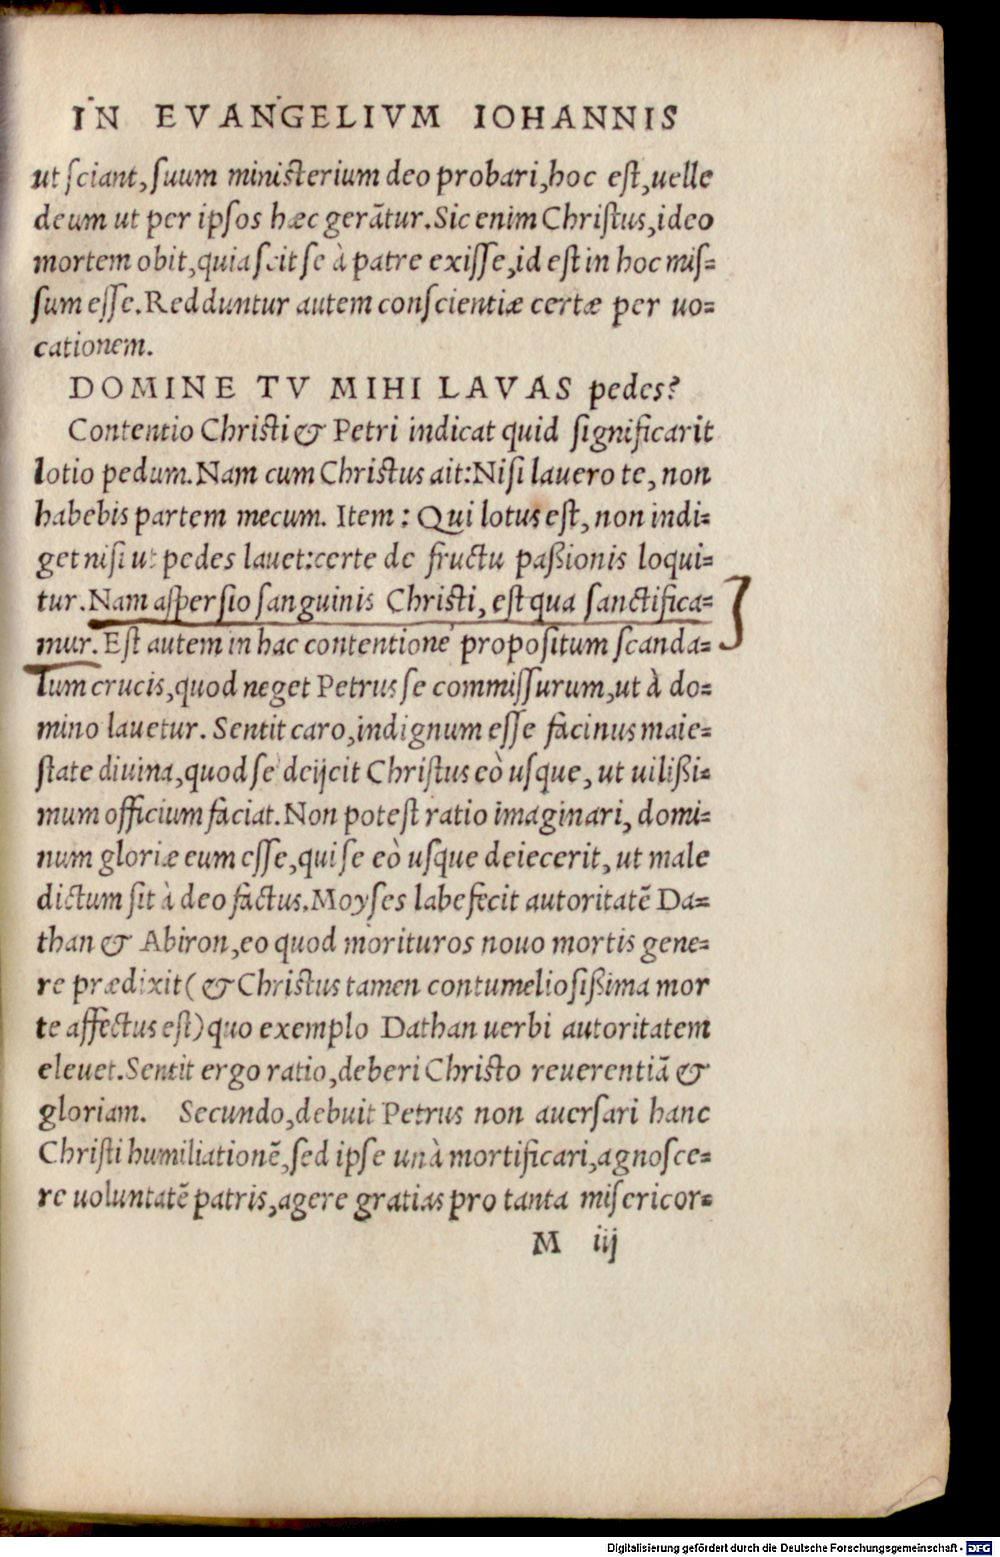 IN EVANGELIVM IOHANNIS
ut sciant, suum ministerium deo probari, hoc est, uelle
deum ut per ipsos hæc gerātur. Sic enim Christus, ideo
mortem obit, quia scit se à patre exisse, id est in hoc mis=
sum esse. Redduntur autem conscientiæ certæ per uo=
cationem.
DOMINE TV MIHI LAVAS pedes?
Contentio Christi & Petri indicat quid significarit
lotio pedum. Nam cum Christus ait: Nisi lauero te, non
habebis partem mecum. Item: Qui lotus est, non indi=
get nisi ut pedes lauet: certe de fructu paßionis loqui=
tur. Nam aspersio sanguinis Christi, est qua sanctifica=
mur. Est autem in hac contentione propositum scanda=
lum crucis, quod neget Petrus se commissurum, ut à do=
mino lauetur. Sentit caro, indignum esse facinus maie=
state diuina, quod se deijcit Christus eò usque, ut uilißi=
mum officium faciat. Non potest ratio imaginari, domi=
num gloriæ eum esse, qui se eò usque deiecerit, ut male
dictum sit à deo factus. Moyses labefecit autoritatē Da=
than & Abiron, eo quod morituros nouo mortis gene=
re prædixit (& Christus tamen contumeliosißima mor
te affectus est) quo exemplo Dathan uerbi autoritatem
eleuet. Sentit ergo ratio, deberi Christo reuerentiā &
gloriam. Secundo, debuit Petrus non auersari hanc
Christi humiliationē, sed ipse unà mortificari, agnosce=
re uoluntatē patris, agere gratias pro tanta misericor=
M iij
Digitalisierung gefördert durch die Deutsche Forschungsgemeinschaft - DFG